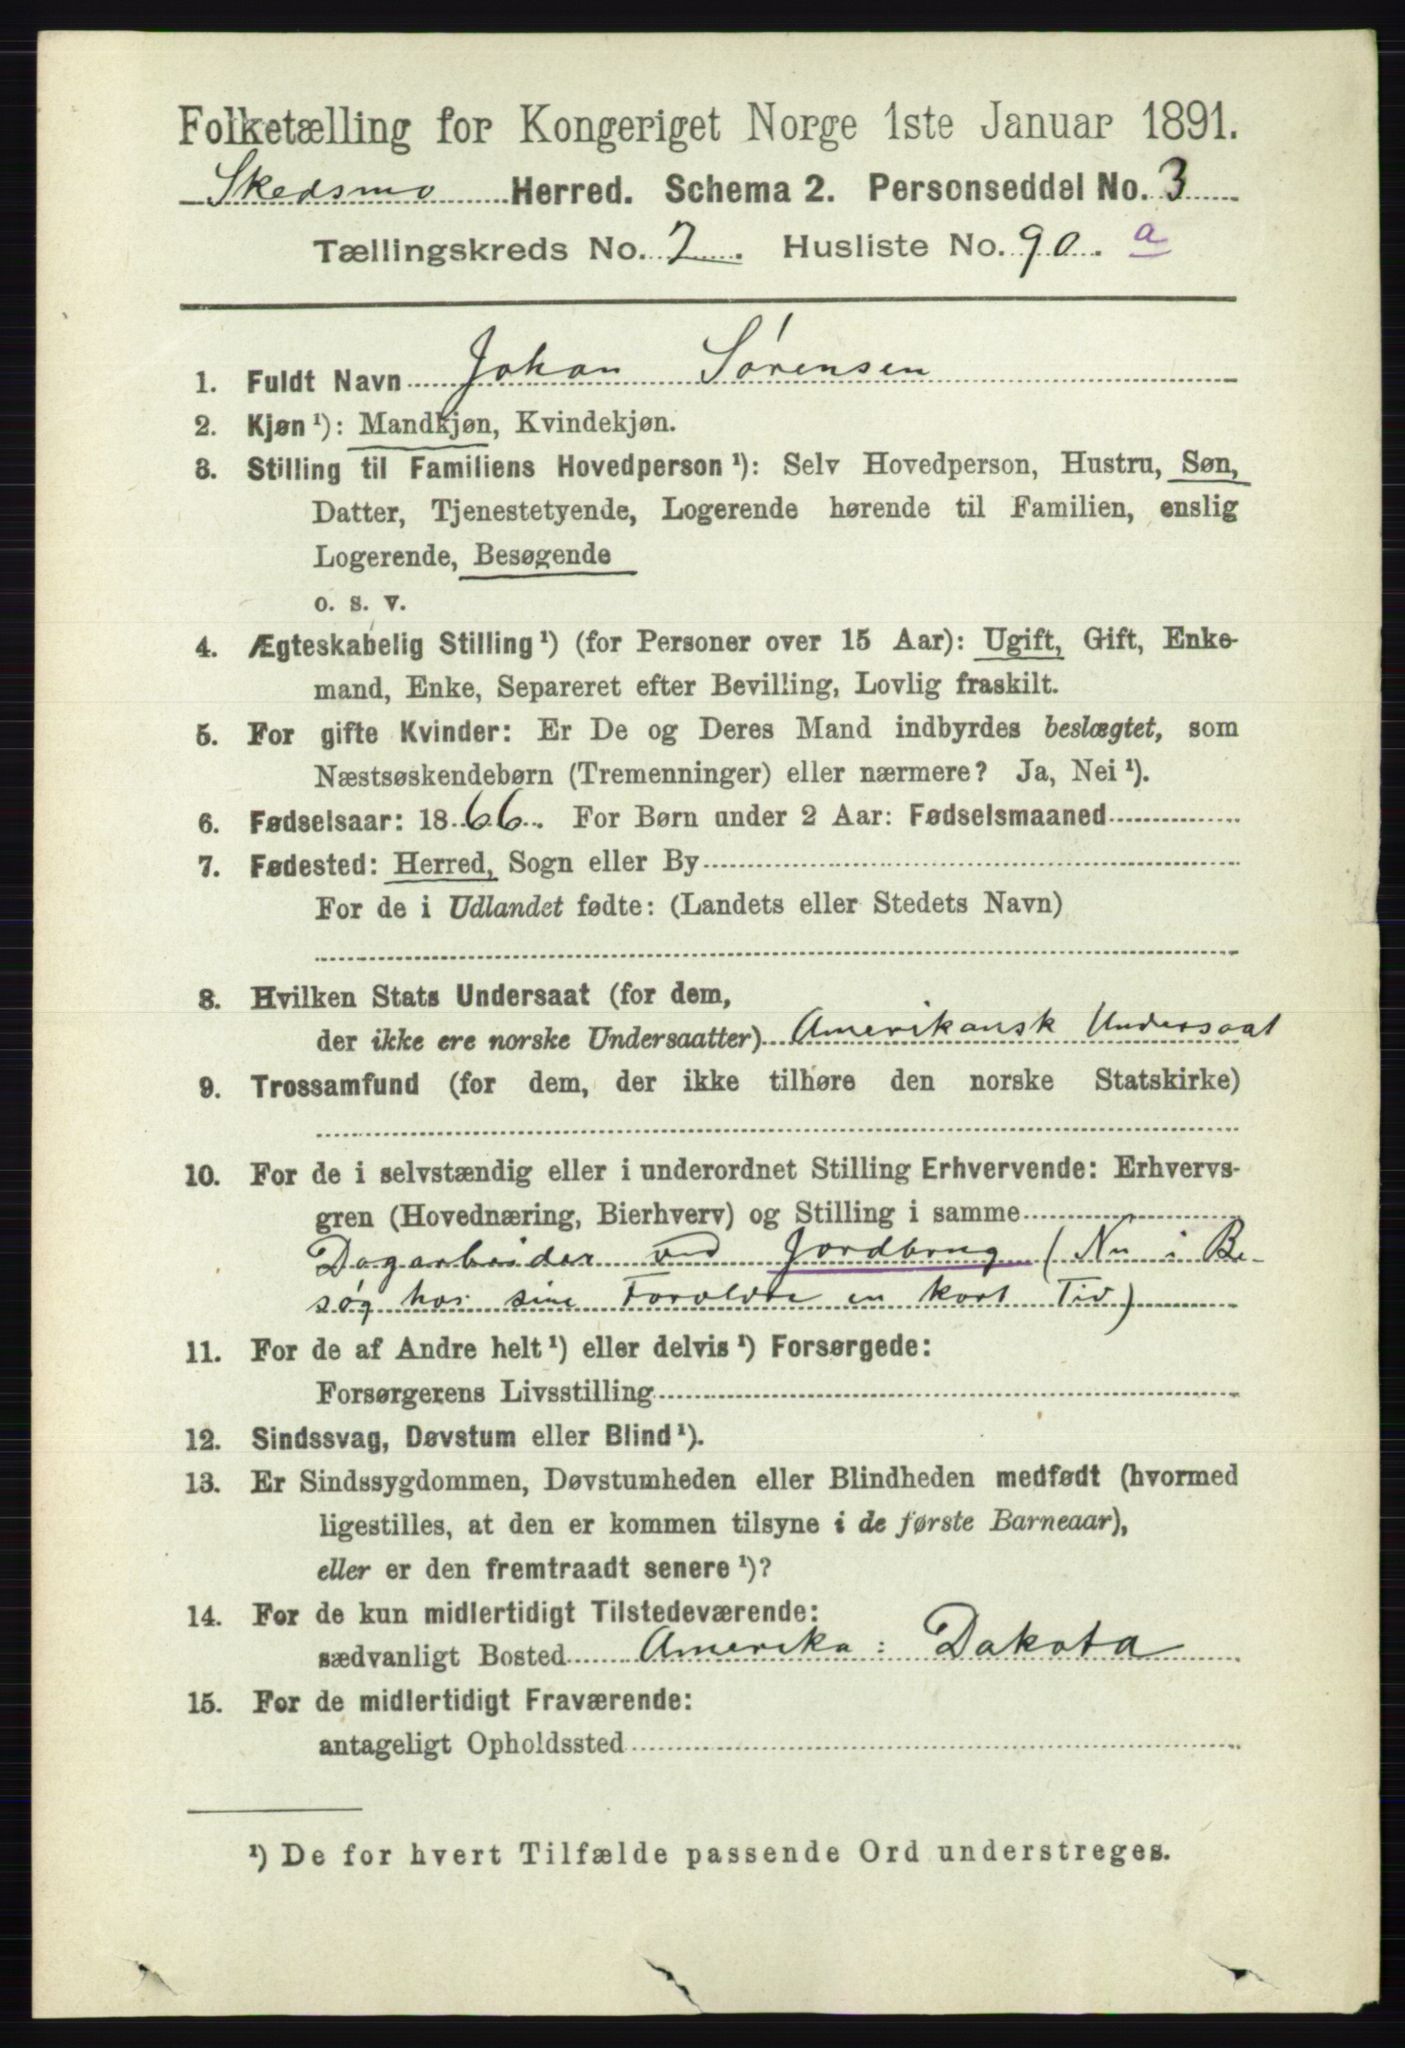 Folketælling for Kongeriget Norge 1ste Januar 1891.
Skedsmo Herred. Schema 2. Personseddel No. 3
Tællingskreds No. 7. Husliste No. 90. a
1. Fuldt Navn Johan Sørensen
2. Kjøn ¹): Mandkjøn, Kvindekjøn.
3. Stilling til Familiens Hovedperson ¹): Selv Hovedperson, Hustru, Søn,
Datter, Tjenestetyende, Logerende hørende til Familien, enslig
Logerende, Besøgende
o. s. v.
4. Ægteskabelig Stilling ¹) (for Personer over 15 Aar): Ugift, Gift, Enke-
mand, Enke, Separeret efter Bevilling, Lovlig fraskilt.
5. For gifte Kvinder: Er De og Deres Mand indbyrdes beslægtet, som
Næstsøskendebørn (Tremenninger) eller nærmere? Ja, Nei ¹).
6. Fødselsaar: 1866. For Børn under 2 Aar: Fødselsmaaned
7. Fødested: Herred, Sogn eller By
For de i Udlandet fødte: (Landets eller Stedets Navn)
8. Hvilken Stats Undersaat (for dem,
der ikke ere norske Undersaatter) Amerikansk Undersaat
9. Trossamfund (for dem, der ikke tilhøre den norske Statskirke)
10. For de i selvstændig eller i underordnet Stilling Erhvervende: Erhvervs-
gren (Hovednæring, Bierhverv) og Stilling i samme
Dagarbeider ved Jordbrug (Nu i Be-
søg hos sine Forældre en kort Tid)
11. For de af Andre helt ¹) eller delvis ¹) Forsørgede:
Forsørgerens Livsstilling
12. Sindssvag, Døvstum eller Blind ¹).
13. Er Sindssygdommen, Døvstumheden eller Blindheden medfødt (hvormed
ligestilles, at den er kommen tilsyne i de første Barneaar),
eller er den fremtraadt senere ¹)?
14. For de kun midlertidigt Tilstedeværende:
sædvanligt Bosted Amerika: Dakota
15. For de midlertidigt Fraværende:
antageligt Opholdssted
¹) De for hvert Tilfælde passende Ord understreges.